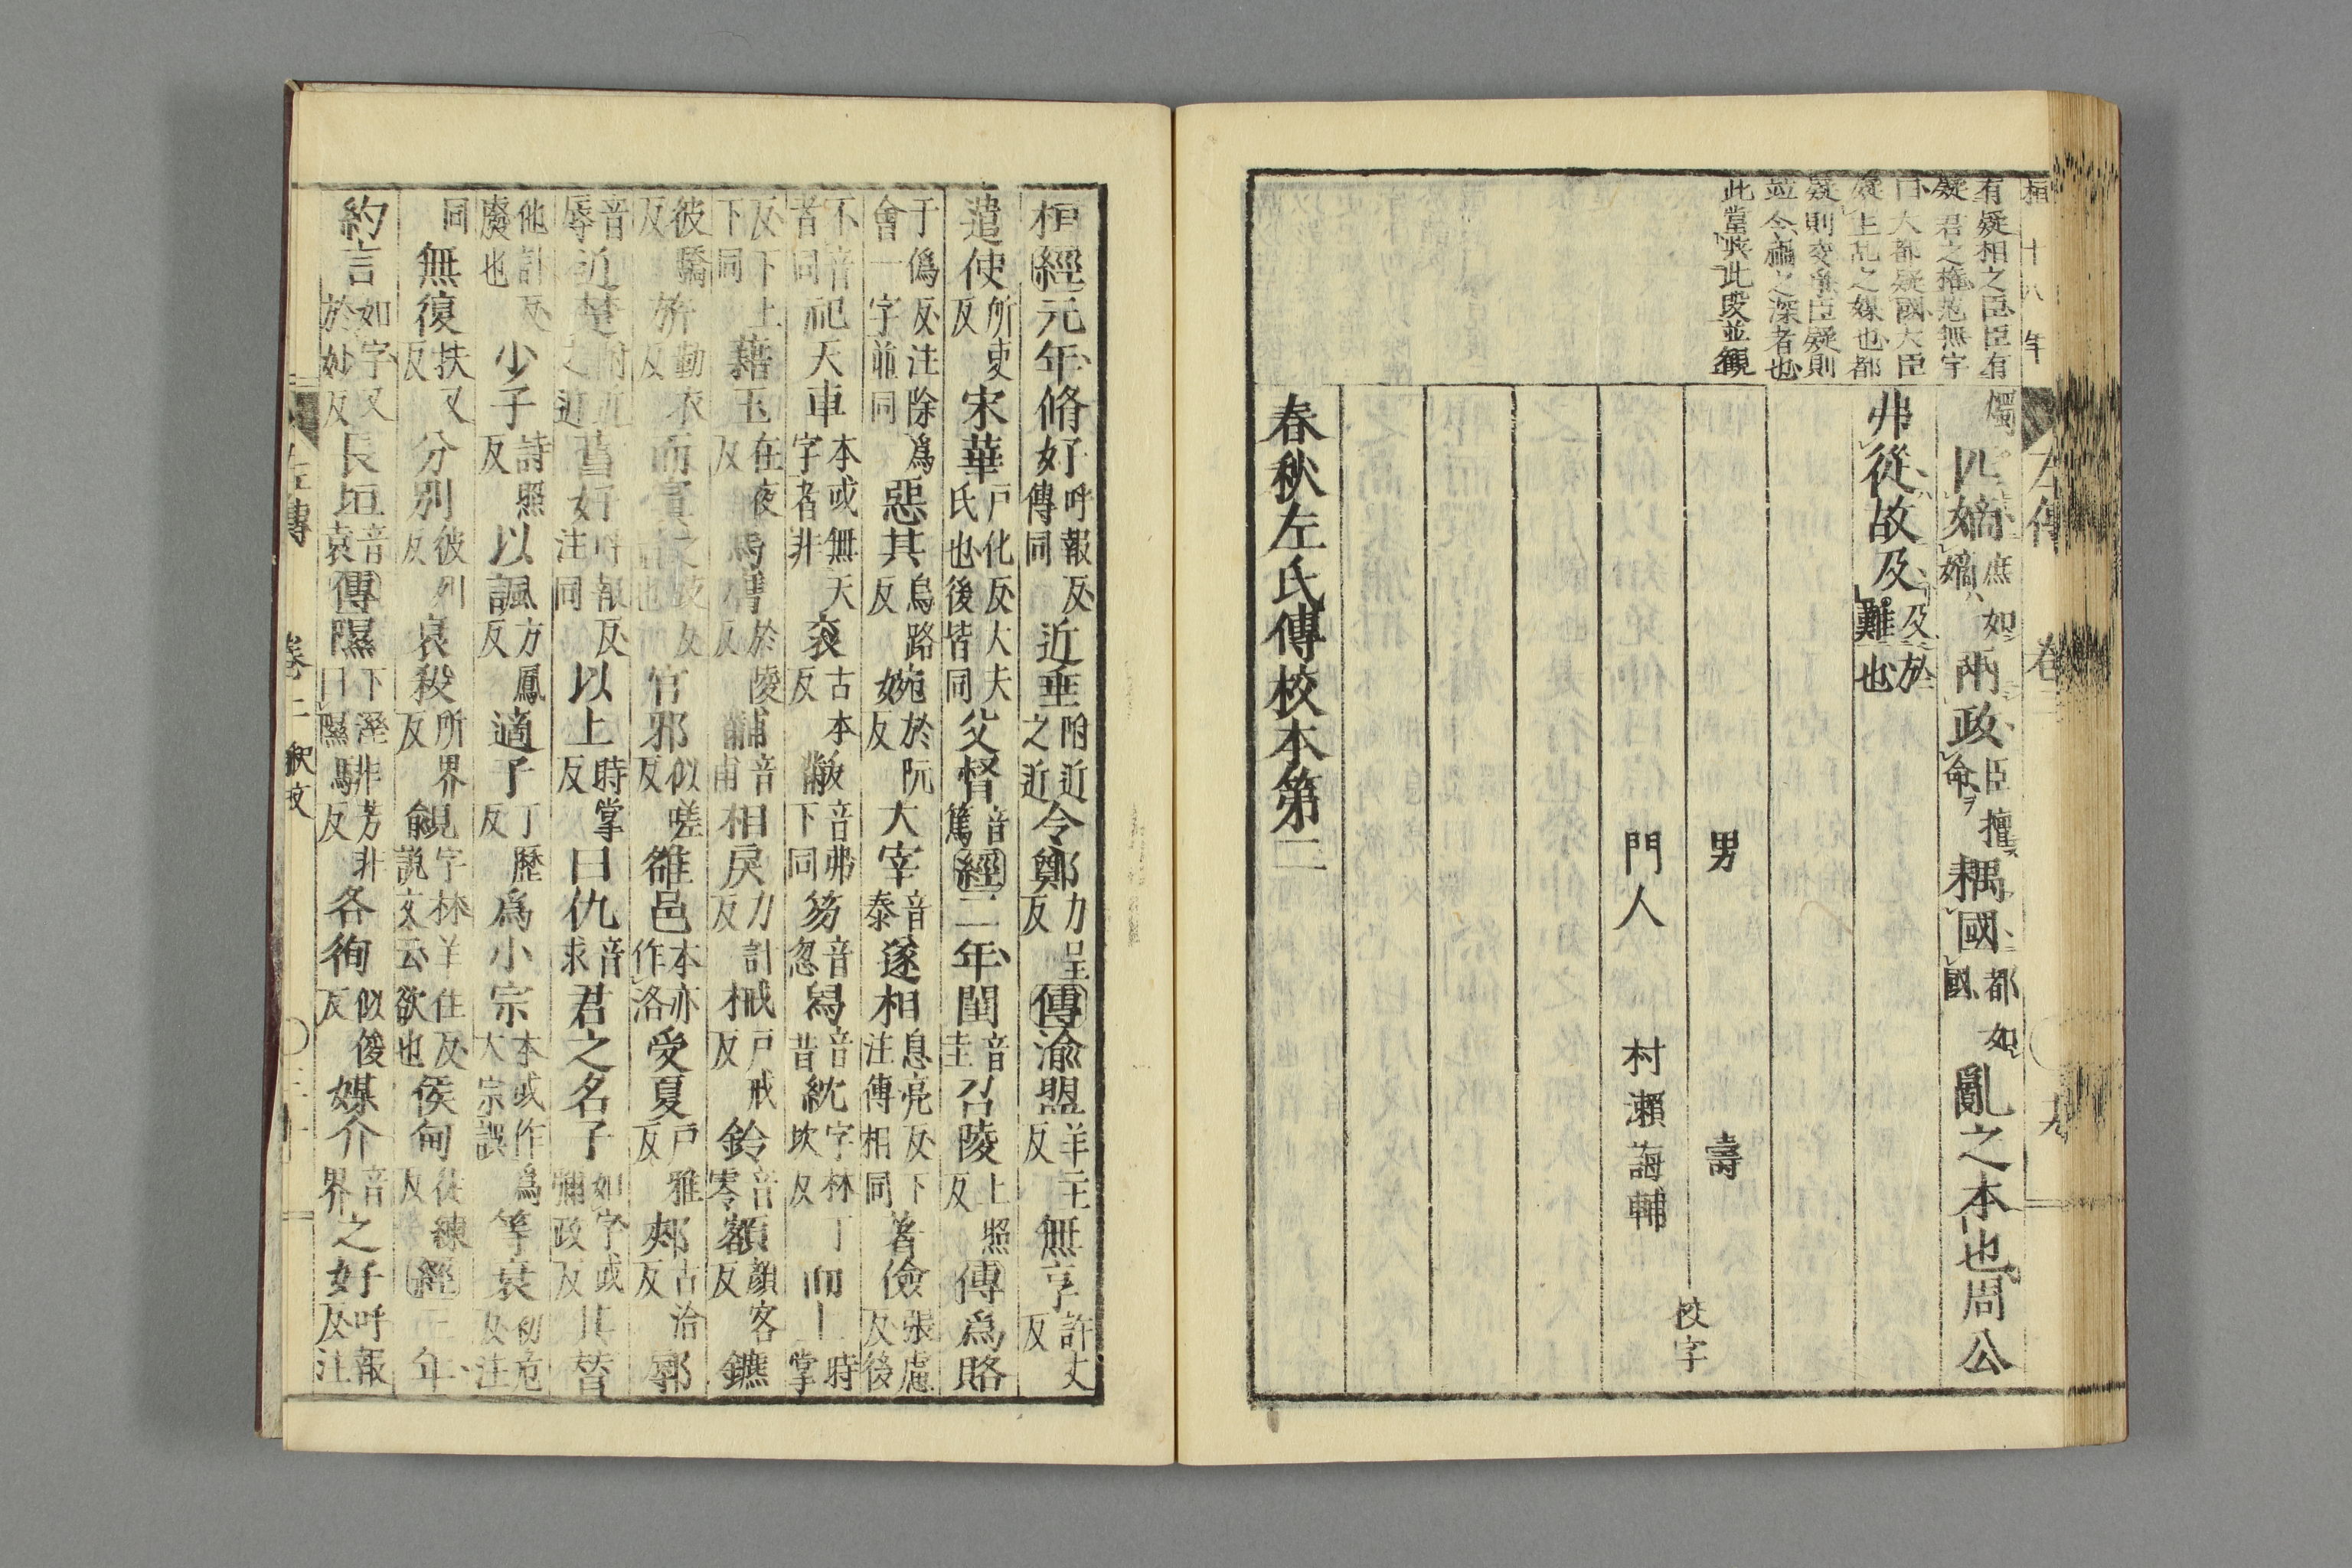 桓 十八年
有疑相之臣臣有
疑君之權恐無宇
曰大都疑國大臣
疑主乱之媒也都
疑則交爭臣疑則
並令禍之深者也
此當與此段並觀
左傳 卷二 十九
燭 匹嫡庶如嫡兩政臣擅命耦國都如國亂之本也周公
弗從故及及於難也
男 壽
門人 村瀨誨輔
校字
春秋左氏傳校本第二
桓經元年脩好呼報反傳同近垂附近之近令鄭力呈反傳渝盟羊主反無享許丈反
遣使所吏反宋華戶化反大夫氏也後皆同父督音篤經二年閨音圭召陵上照反傳爲賂
于僞反注除爲會一字並同惡其烏路反婉於阮反大宰音泰遂相息亮反下注傳相同著儉張慮反後
不音者同祀天車本或無天字者非袞古本反黻音弗下同笏音忽舄音昔紞字林丁坎反而上時掌
反下上下同藉玉在夜反馬膺於陵反黼音甫相戾力計反械戶戒反鈴音零額顏客反鑣
彼驕反旂勤衣反而寘之豉反官邪似嗟反雒邑本亦作洛受夏戶雅反郟古洽反鄏
音辱近楚附近之近舊好呼報反注同以上時掌反曰仇音求君之名子如字或彌政反其替
他計反廢也少子詩照反以諷方鳳反適子丁歷反爲小宗本或作爲大宗誤等衰初危反注
同無復扶又反分別彼列反哀殺所界反覦見字林羊住反說文云欲也侯甸徒練反經三年
約言如字又於妙反長垣音袁傳隰下溼曰隰騑芳非反各徇似俊反媒介音界之好呼報反注
左傳 卷二 釈文